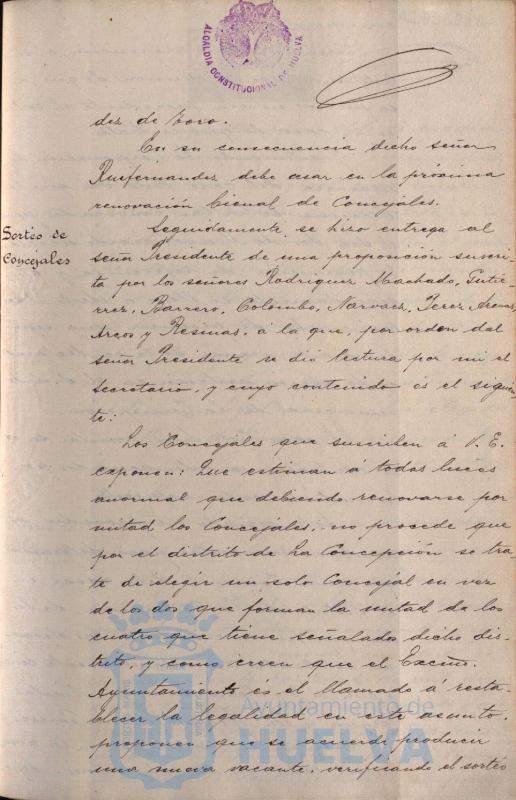 ALCALDIA CONSTITUCIONAL DE HUELVA
dez de Toro.
En su consecuencia dicho señor
Ruifernandez debe cesar en la próxima
renovación bienal de Concejales.
Sorteo de
Concejales
Seguidamente se hizo entrega al
señor Presidente de una proposición suscri-
ta por los señores Rodriguez Machado, Gutié-
rrez, Barrero, Colombo, Narvaez, Perez Arenas,
Arcos y Resinas, á la que, por orden del
señor Presidente se dió lectura por mi el
Secretario, y cuyo contenido és el siguien-
te:
Los Concejales que suscriben á V. E.
exponen: Que estiman á todas luces
anormal que debiendo renovarse por
mitad los Concejales, no procede que
por el distrito de La Concepción se tra-
te de elegir un solo Concejal en vez
de los dos que forman la mitad de los
cuatro que tiene señalados dicho dis-
trito, y como creen que el Excmo.
Ayuntamiento és el llamado á resta-
blecer la legalidad en este asunto,
proponen que se acuerde producir
una nueva vacante, verificando el sorteo
Ayuntamiento de
HUELVA